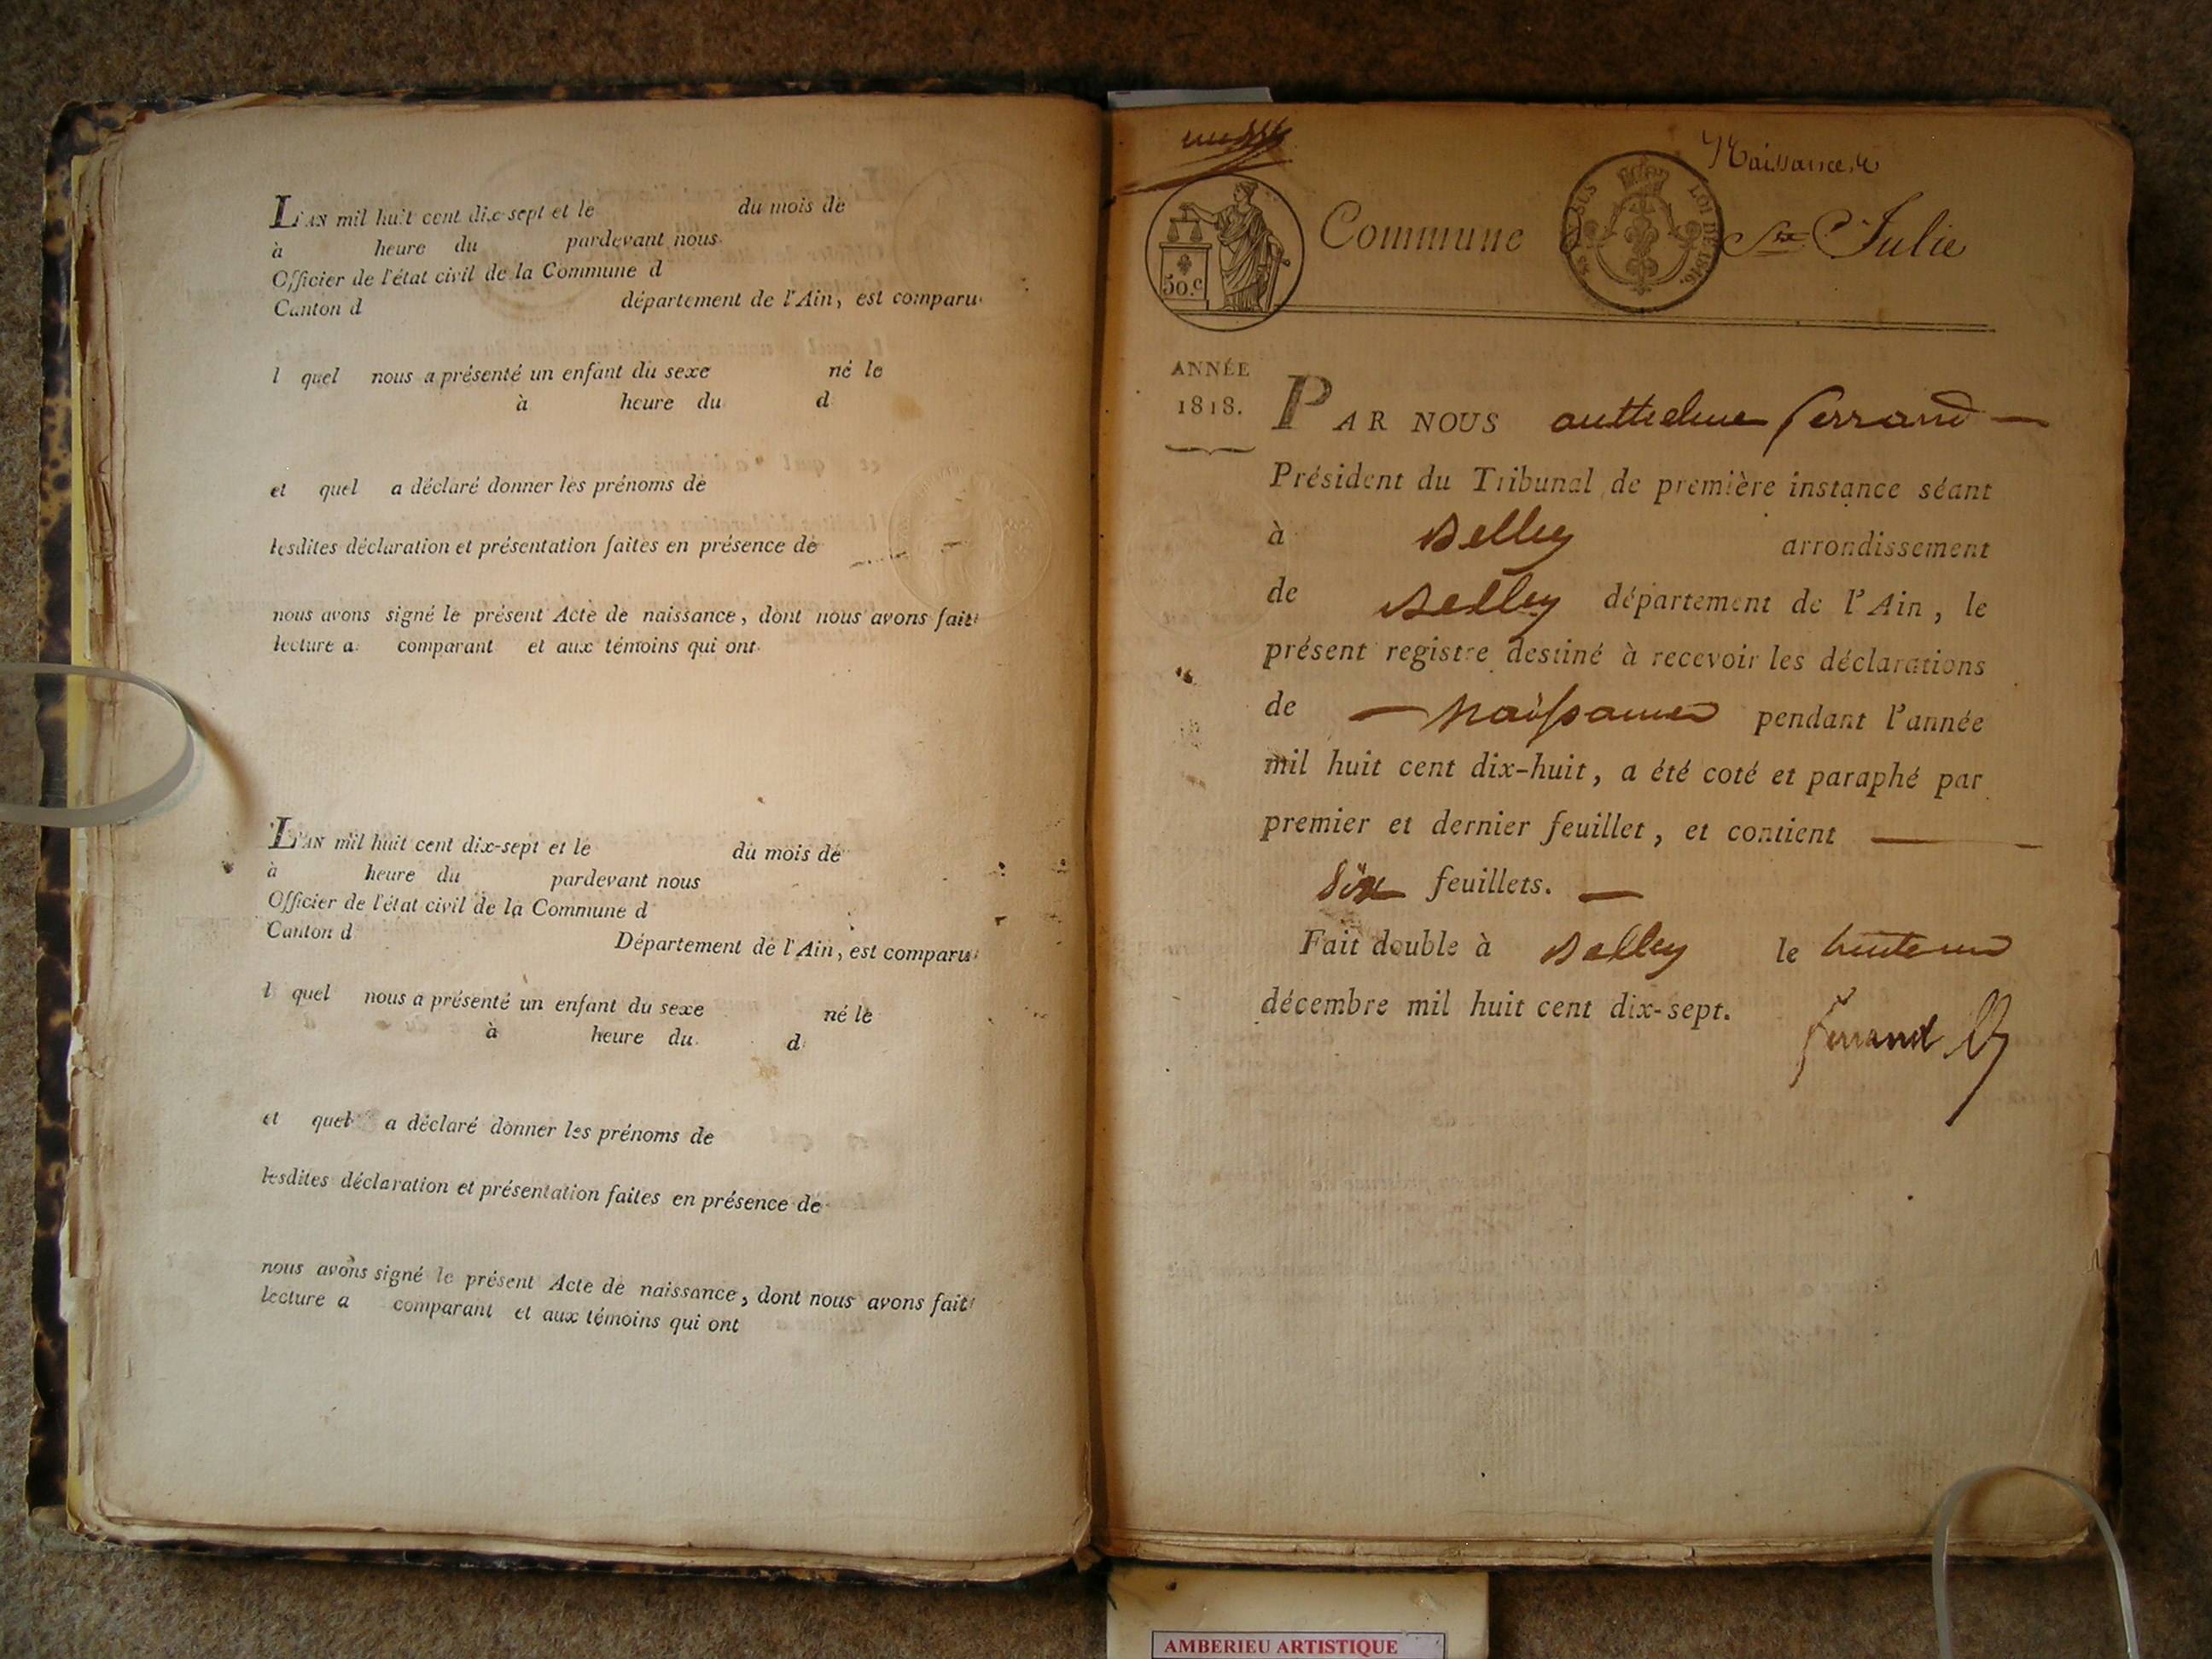 L'AN mil huit cent dix-sept et le du mois de
à heure du pardevant nous
Officier de l'état civil de la Commune d
Canton d département de l'Ain, est comparu
l quel nous a présenté un enfant du sexe né le
à heure du d
et quel a déclaré donner les prénoms de
lesdites déclaration et présentation faites en présence de
nous avons signé le présent Acte de naissance, dont nous avons fait
lecture a comparant et aux témoins qui ont
L'AN mil huit cent dix-sept et le du mois de
à heure du pardevant nous
Officier de l'état civil de la Commune d
Canton d Département de l'Ain, est comparu
l quel nous a présenté un enfant du sexe né le
à heure du d
et quel a déclaré donner les prénoms de
lesdites déclaration et présentation faites en présence de
nous avons signé le présent Acte de naissance, dont nous avons fait
lecture a comparant et aux témoins qui ont
Naissances
50.c
LOI DE 1816.
Commune d Ste Julie
ANNÉE
1818.
PAR NOUS anthelme ferrand
Président du Tribunal de première instance séant
à Belley arrondissement
de Belley département de l'Ain, le
présent registre destiné à recevoir les déclarations
de naissances pendant l'année
mil huit cent dix-huit, a été coté et paraphé par
premier et dernier feuillet, et contient
six feuillets.
Fait double à Belley le trente un
décembre mil huit cent dix-sept.
ferrand
AMBERIEU ARTISTIQUE